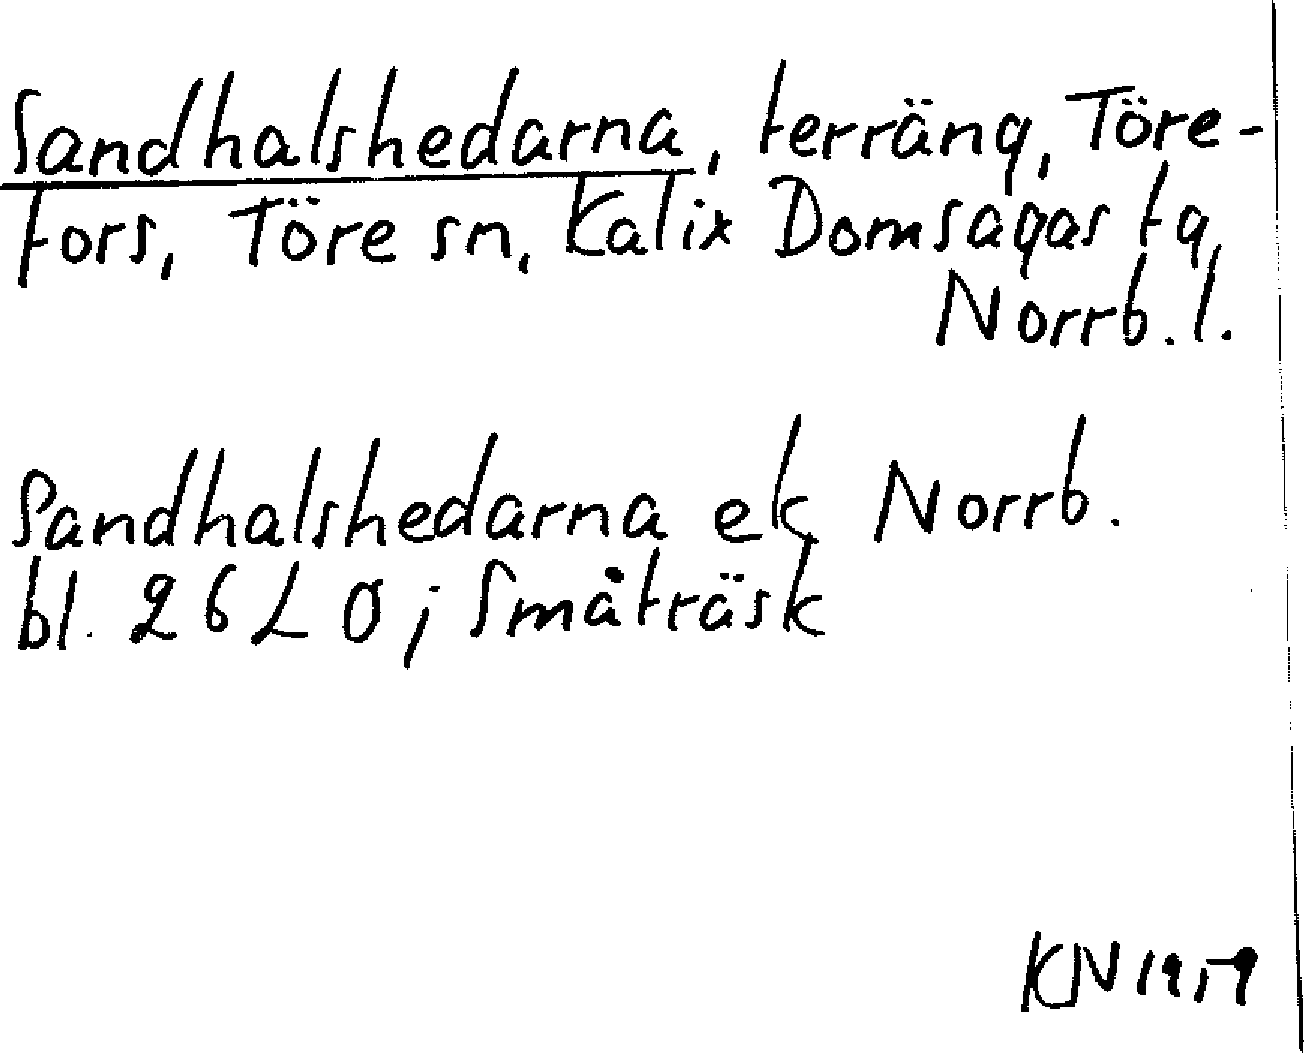 Sandhalshedarna, terräng, Töre-
fors, Töre sn, Kalix Domsagas tg,
Norrb. l.
Sandhalshedarna ek Norrb.
bl. 26 L 0; Småträsk
KN 1959